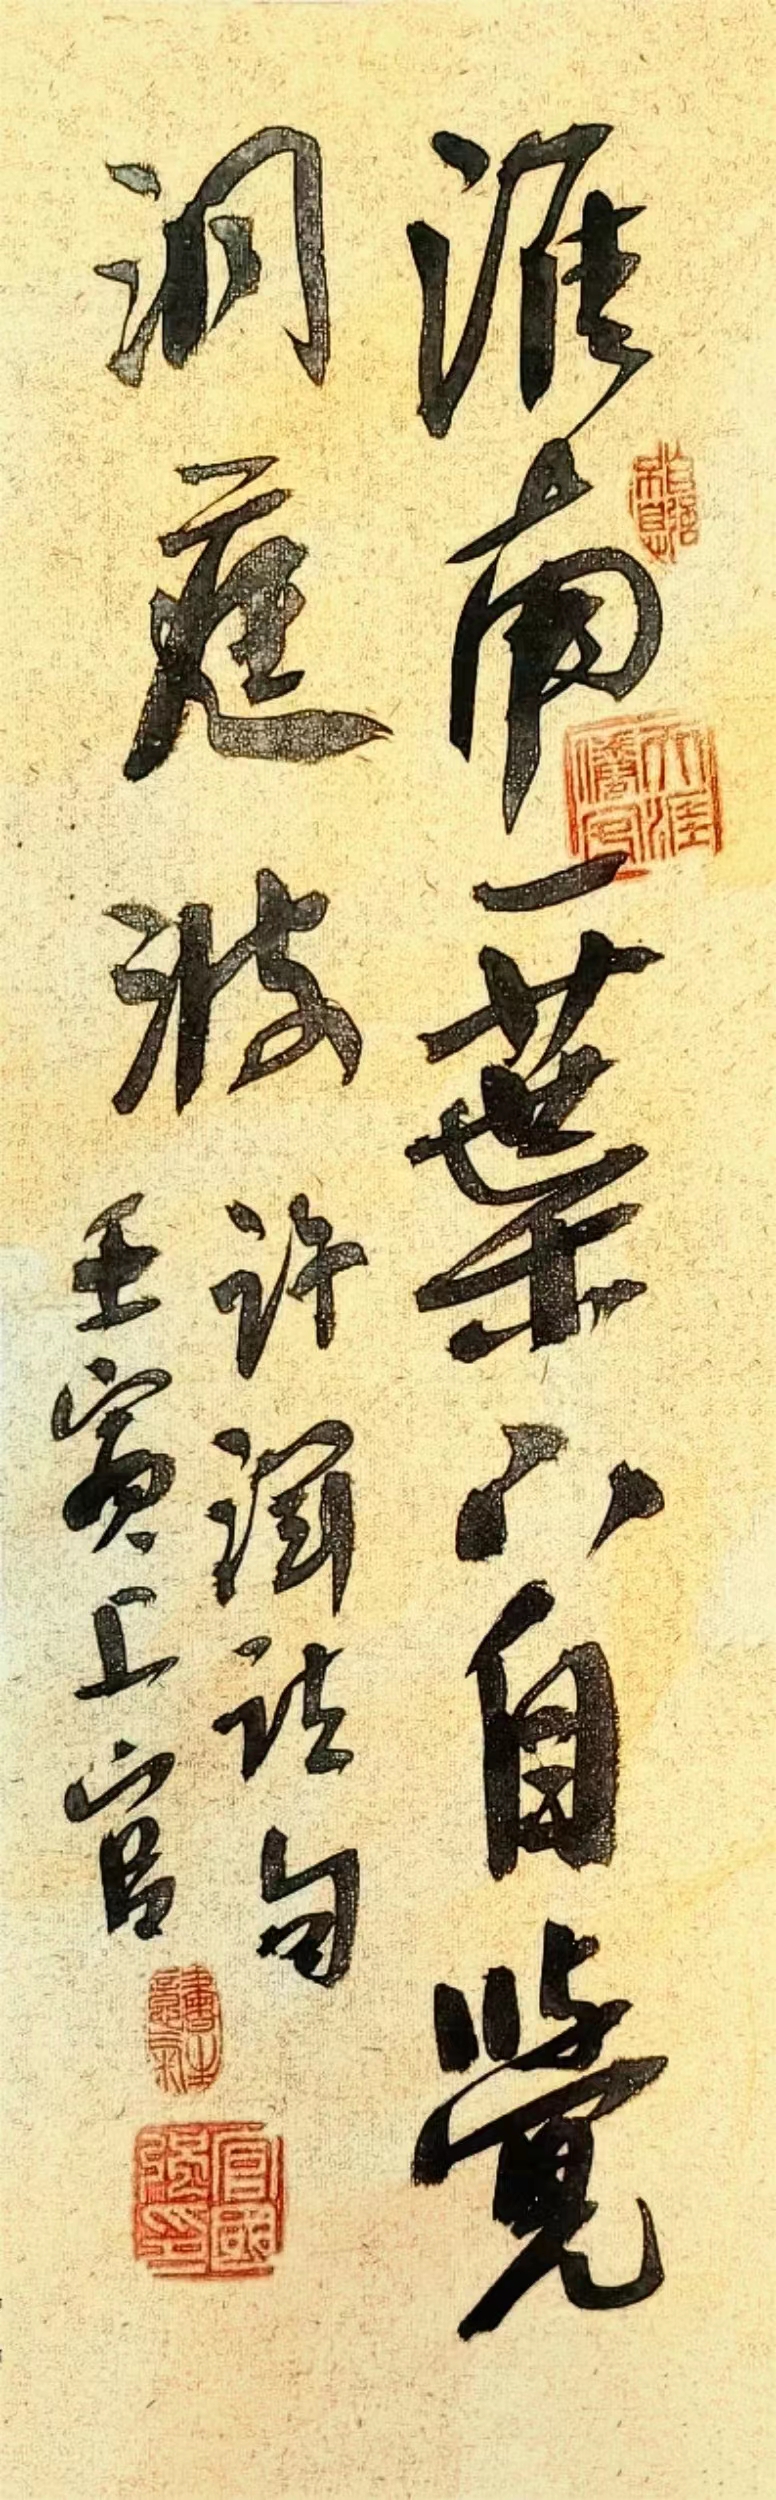 淮南一葉下自覺
洞庭波
許渾詩句
壬寅上官